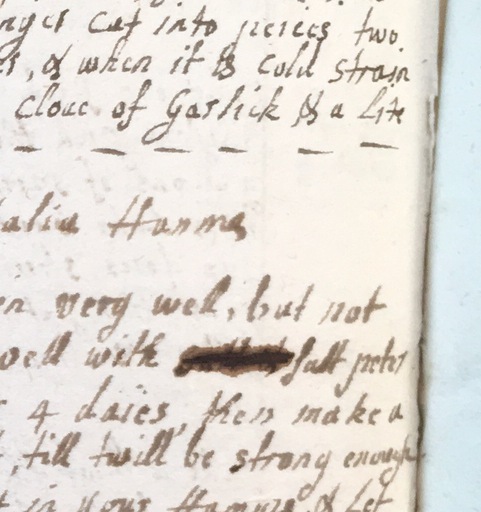 nger cut into peices two
rs, & when it is cold strain
Clove of Garlick & a Litt
alia Hamms
en very well, but not
well with salt peter
4 daies, then make a
, till twill be strong enough
t in your Hamms & Let